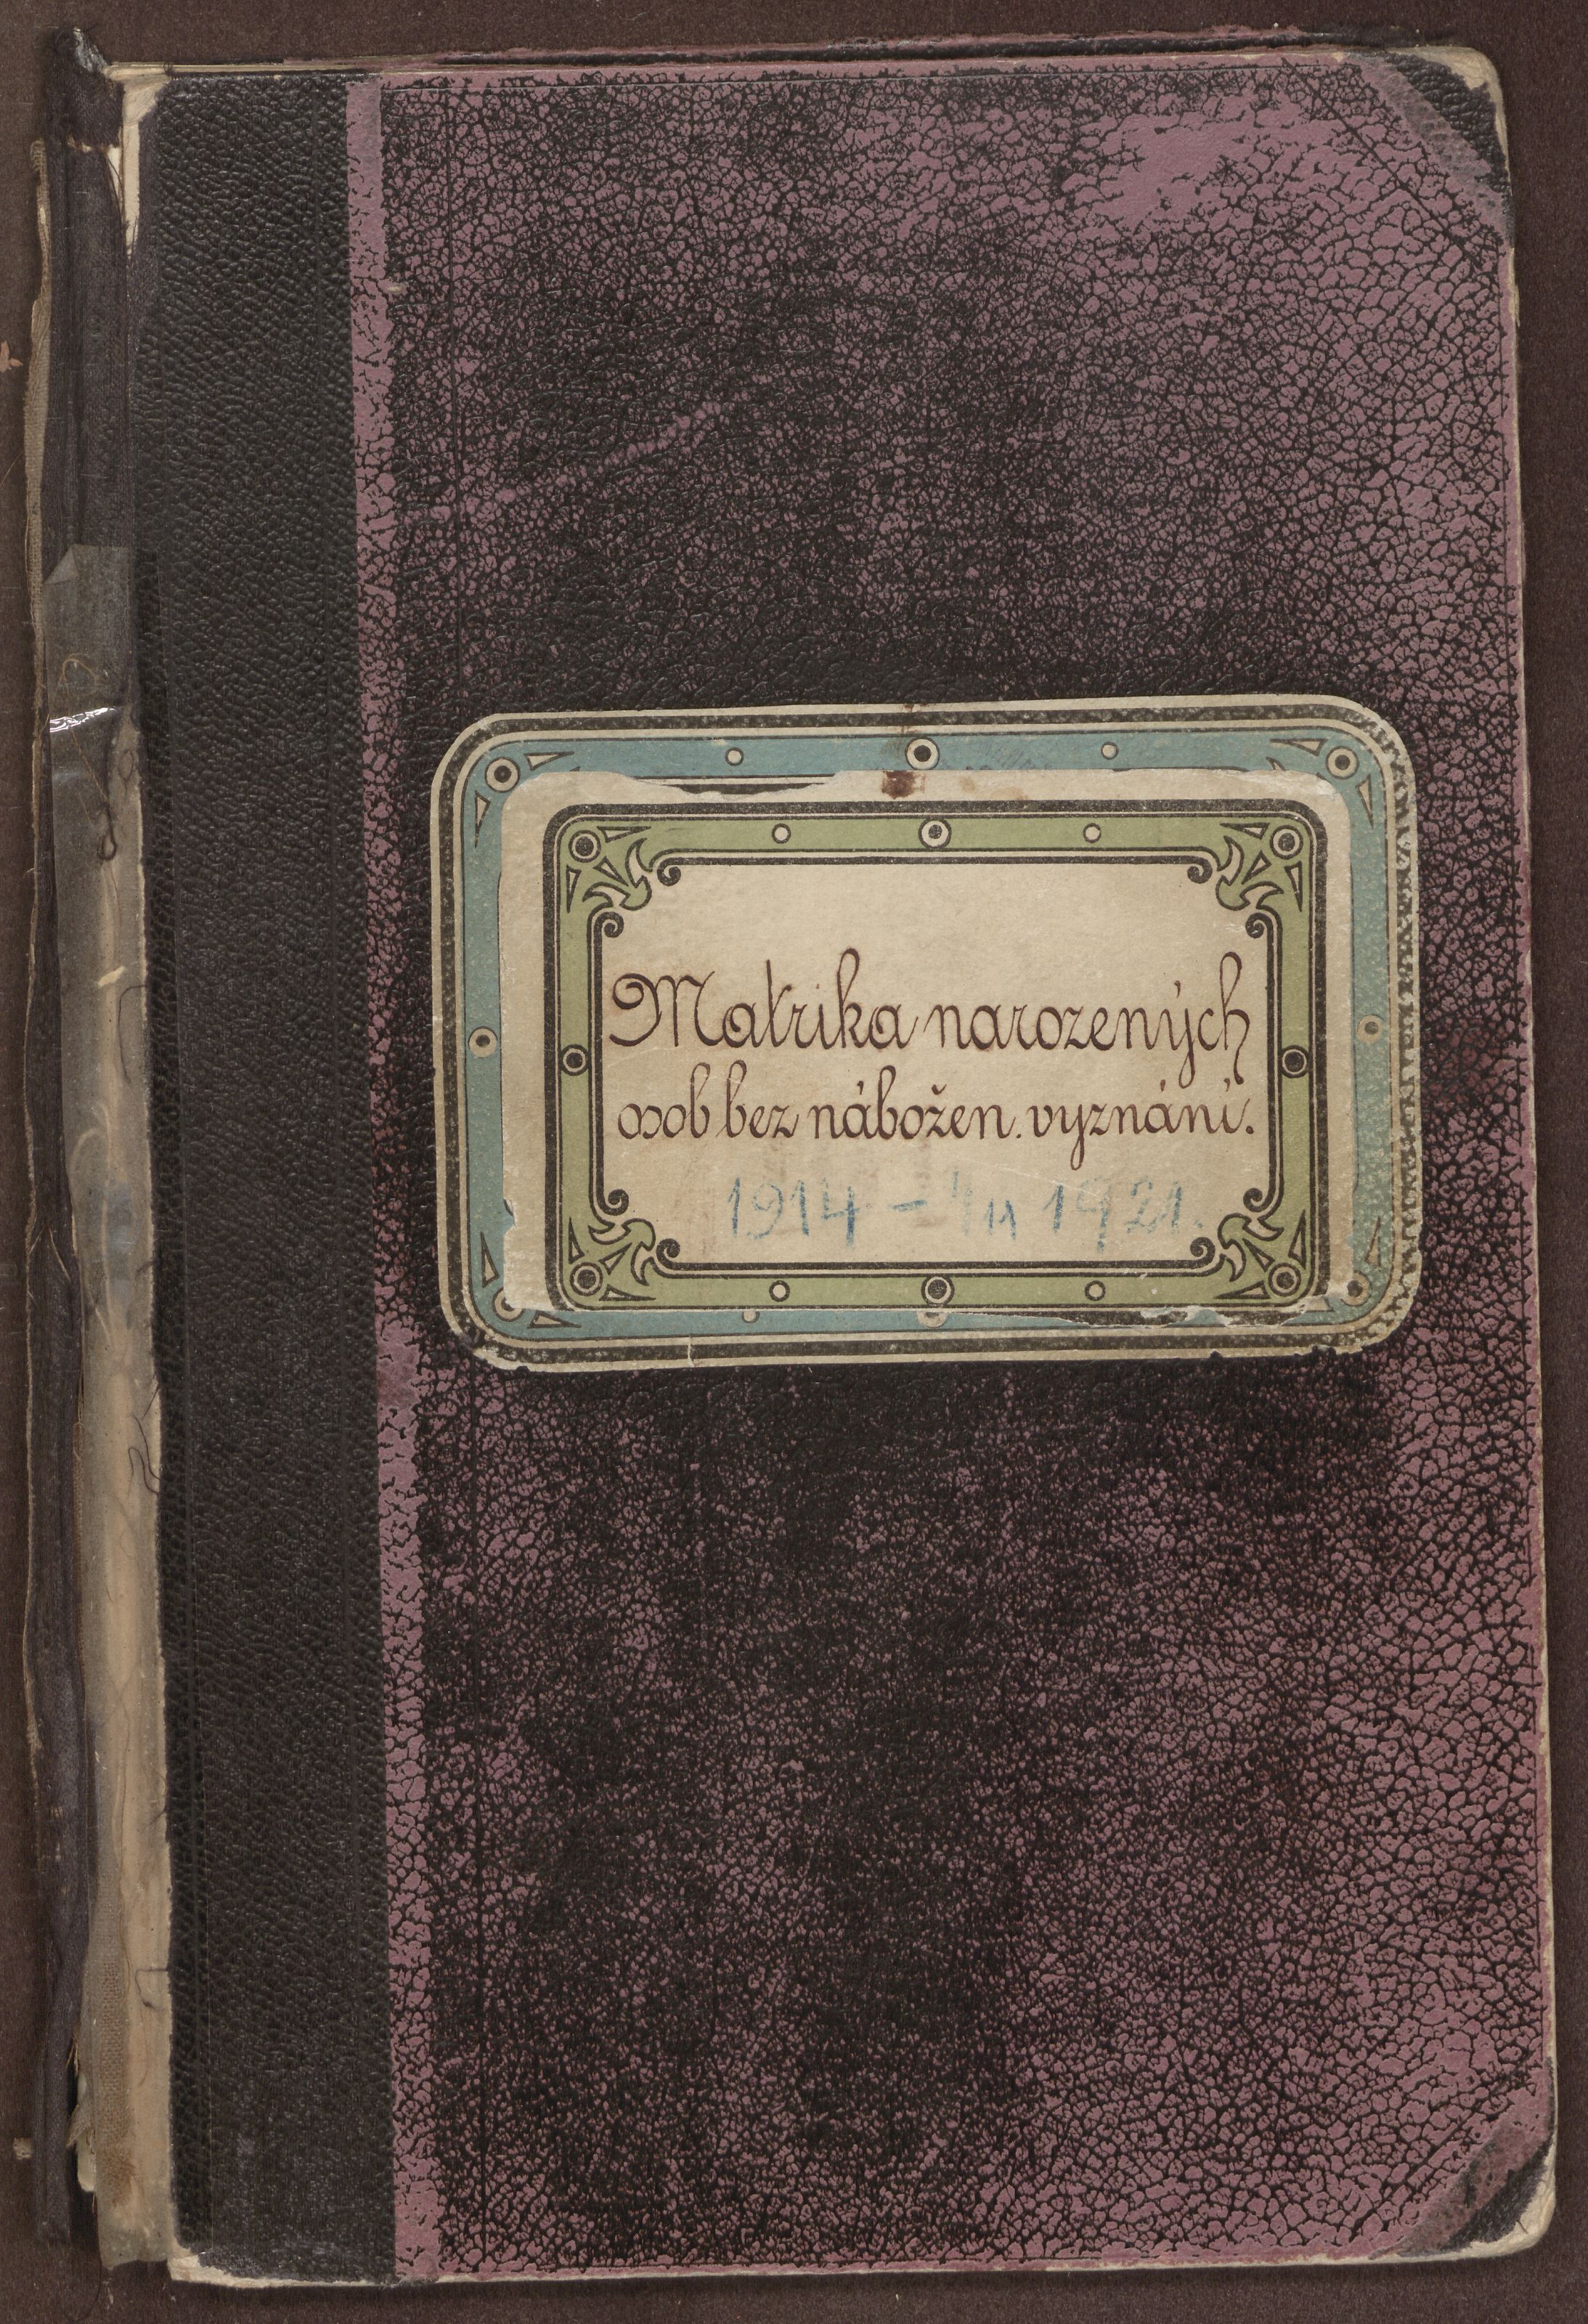 Matrika narozených
osob bez nábožen. vyznání.
1914 - 4/11 1921.